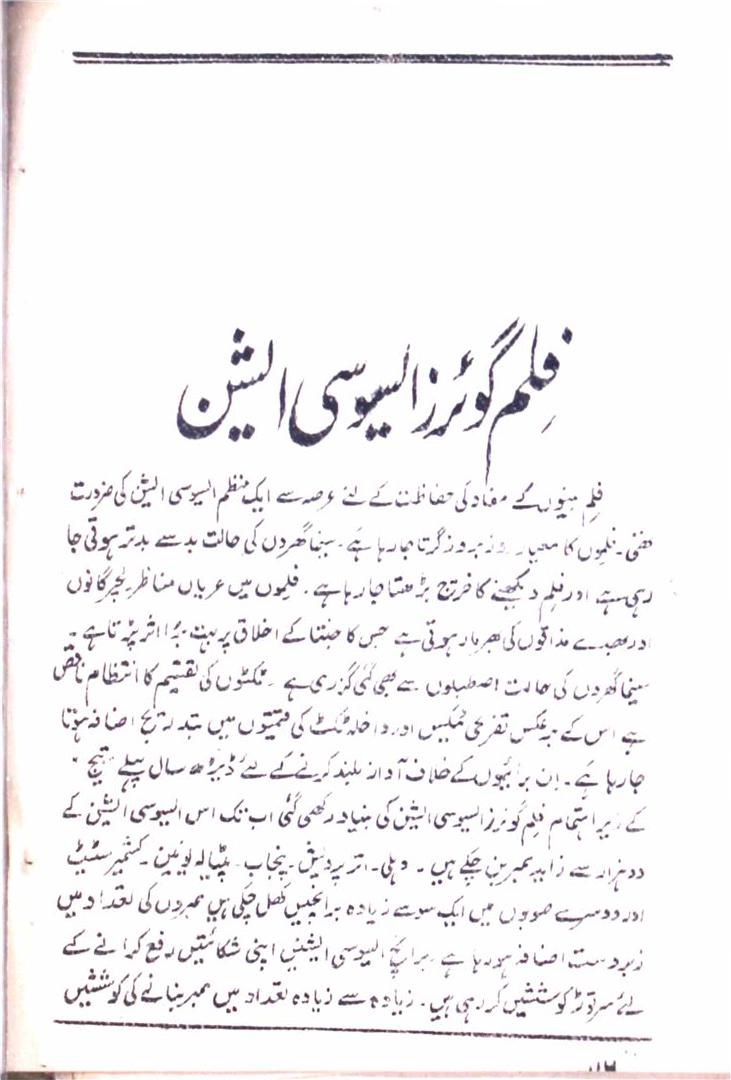 فلم گوئرز ایسوسی ایشن
فلم بینوں کے مفاد کی حفاظت کے لئے عرصہ سے ایک منظم ایسوسی ایشن کی ضرورت
تھی۔ فلموں کا معیار روز بروز گرتا جا رہا ہے۔ سینما گھروں کی حالت بد سے بدتر ہوتی جا
رہی ہے اور فلم دیکھنے کا خرچ بڑھتا جا رہا ہے۔ فلموں میں عریاں مناظر لچر گانوں
اور بھدے مذاقوں کی بھرمار ہوتی ہے جس کا جنتا کے اخلاق پر بہت بُرا اثر پڑتا ہے۔
سینما گھروں کی حالت اصطبلوں سے بھی گئی گزری ہے۔ ٹکٹوں کی تقسیم کا انتظام ناقص
ہے اس کے برعکس تفریحی ٹیکس اور داخلہ ٹکٹ کی قیمتوں میں بتدریج اضافہ ہوتا
جا رہا ہے۔ ان برائیوں کے خلاف آواز بلند کرنے کے لئے ڈیڑھ سال پہلے "سٹیج"
کے زیر اہتمام فلم گوئرز ایسوسی ایشن کی بنیاد رکھی گئی اب تک اس ایسوسی ایشن کے
دو ہزار سے زاید ممبر بن چکے ہیں۔ دہلی۔ اتر پردیش۔ پنجاب۔ پٹیالہ یونین۔ کشمیر سٹیٹ
اور دوسرے صوبوں میں ایک سو سے زیادہ برانچیں کھل چکی ہیں ممبروں کی تعداد میں
زبردست اضافہ ہو رہا ہے۔ برانچ ایسوسی ایشنیں اپنی شکائتیں رفع کرانے کے
لئے سرتوڑ کوششیں کر رہی ہیں۔ زیادہ سے زیادہ تعداد میں ممبر بنانے کی کوششیں